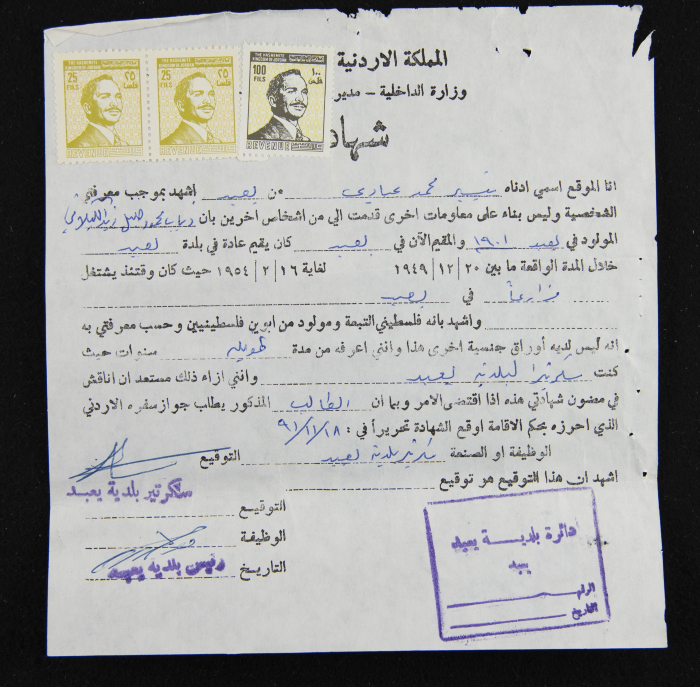 المملكة الاردنية
وزارة الداخلية - مدير
شهاد
THE HASHEMITE KINGDOM OF JORDAN
25 FILS
٢٥ فلس
REVENUE
THE HASHEMITE KINGDOM OF JORDAN
25 FILS
٢٥ فلس
REVENUE
THE HASHEMITE KINGDOM OF JORDAN
100 FILS
١٠٠ فلس
REVENUE
انا الموقع اسمي ادناه تيسير محمد عباري من يعبد اشهد بموجب معرفتي
الشخصية وليس بناء على معلومات اخرى قدمت الي من اشخاص اخرين بان محمود زيد الكيلاني
المولود في يعبد ١٩٠١ والمقيم الآن في يعبد كان يقيم عادة في بلدة يعبد
خلال المدة الواقعة ما بين ٢٠/١٢/١٩٤٩ لغاية ١٦/٢/١٩٥٤ حيث كان وقتئذ يشتغل
مزارعاً في يعبد
واشهد بانه فلسطيني التبعة ومولود من ابوين فلسطينيين وحسب معرفتي به
انه ليس لديه أوراق جنسية اخرى هذا وانني اعرفه من مدة طويلة سنوات حيث
كنت سكرتيرا لبلدية يعبد وانني ازاء ذلك مستعد ان اناقش
في مضمون شهادتي هذه اذا اقتضى الامر وبما ان الطالب المذكور يطلب جواز سفره الاردني
الذي احرزه بحكم الاقامة اوقع الشهادة تحريراً في : ٩١/١١/١٨
الوظيفة او الصنعة سكرتير بلدية يعبد التوقيع
اشهد ان هذا التوقيع هو توقيع
سكرتير بلدية يعبد
التوقيع
الوظيفة
التاريخ
رئيس بلدية يعبد
دائرة بلدية يعبد
يعبد
الرقم
التاريخ